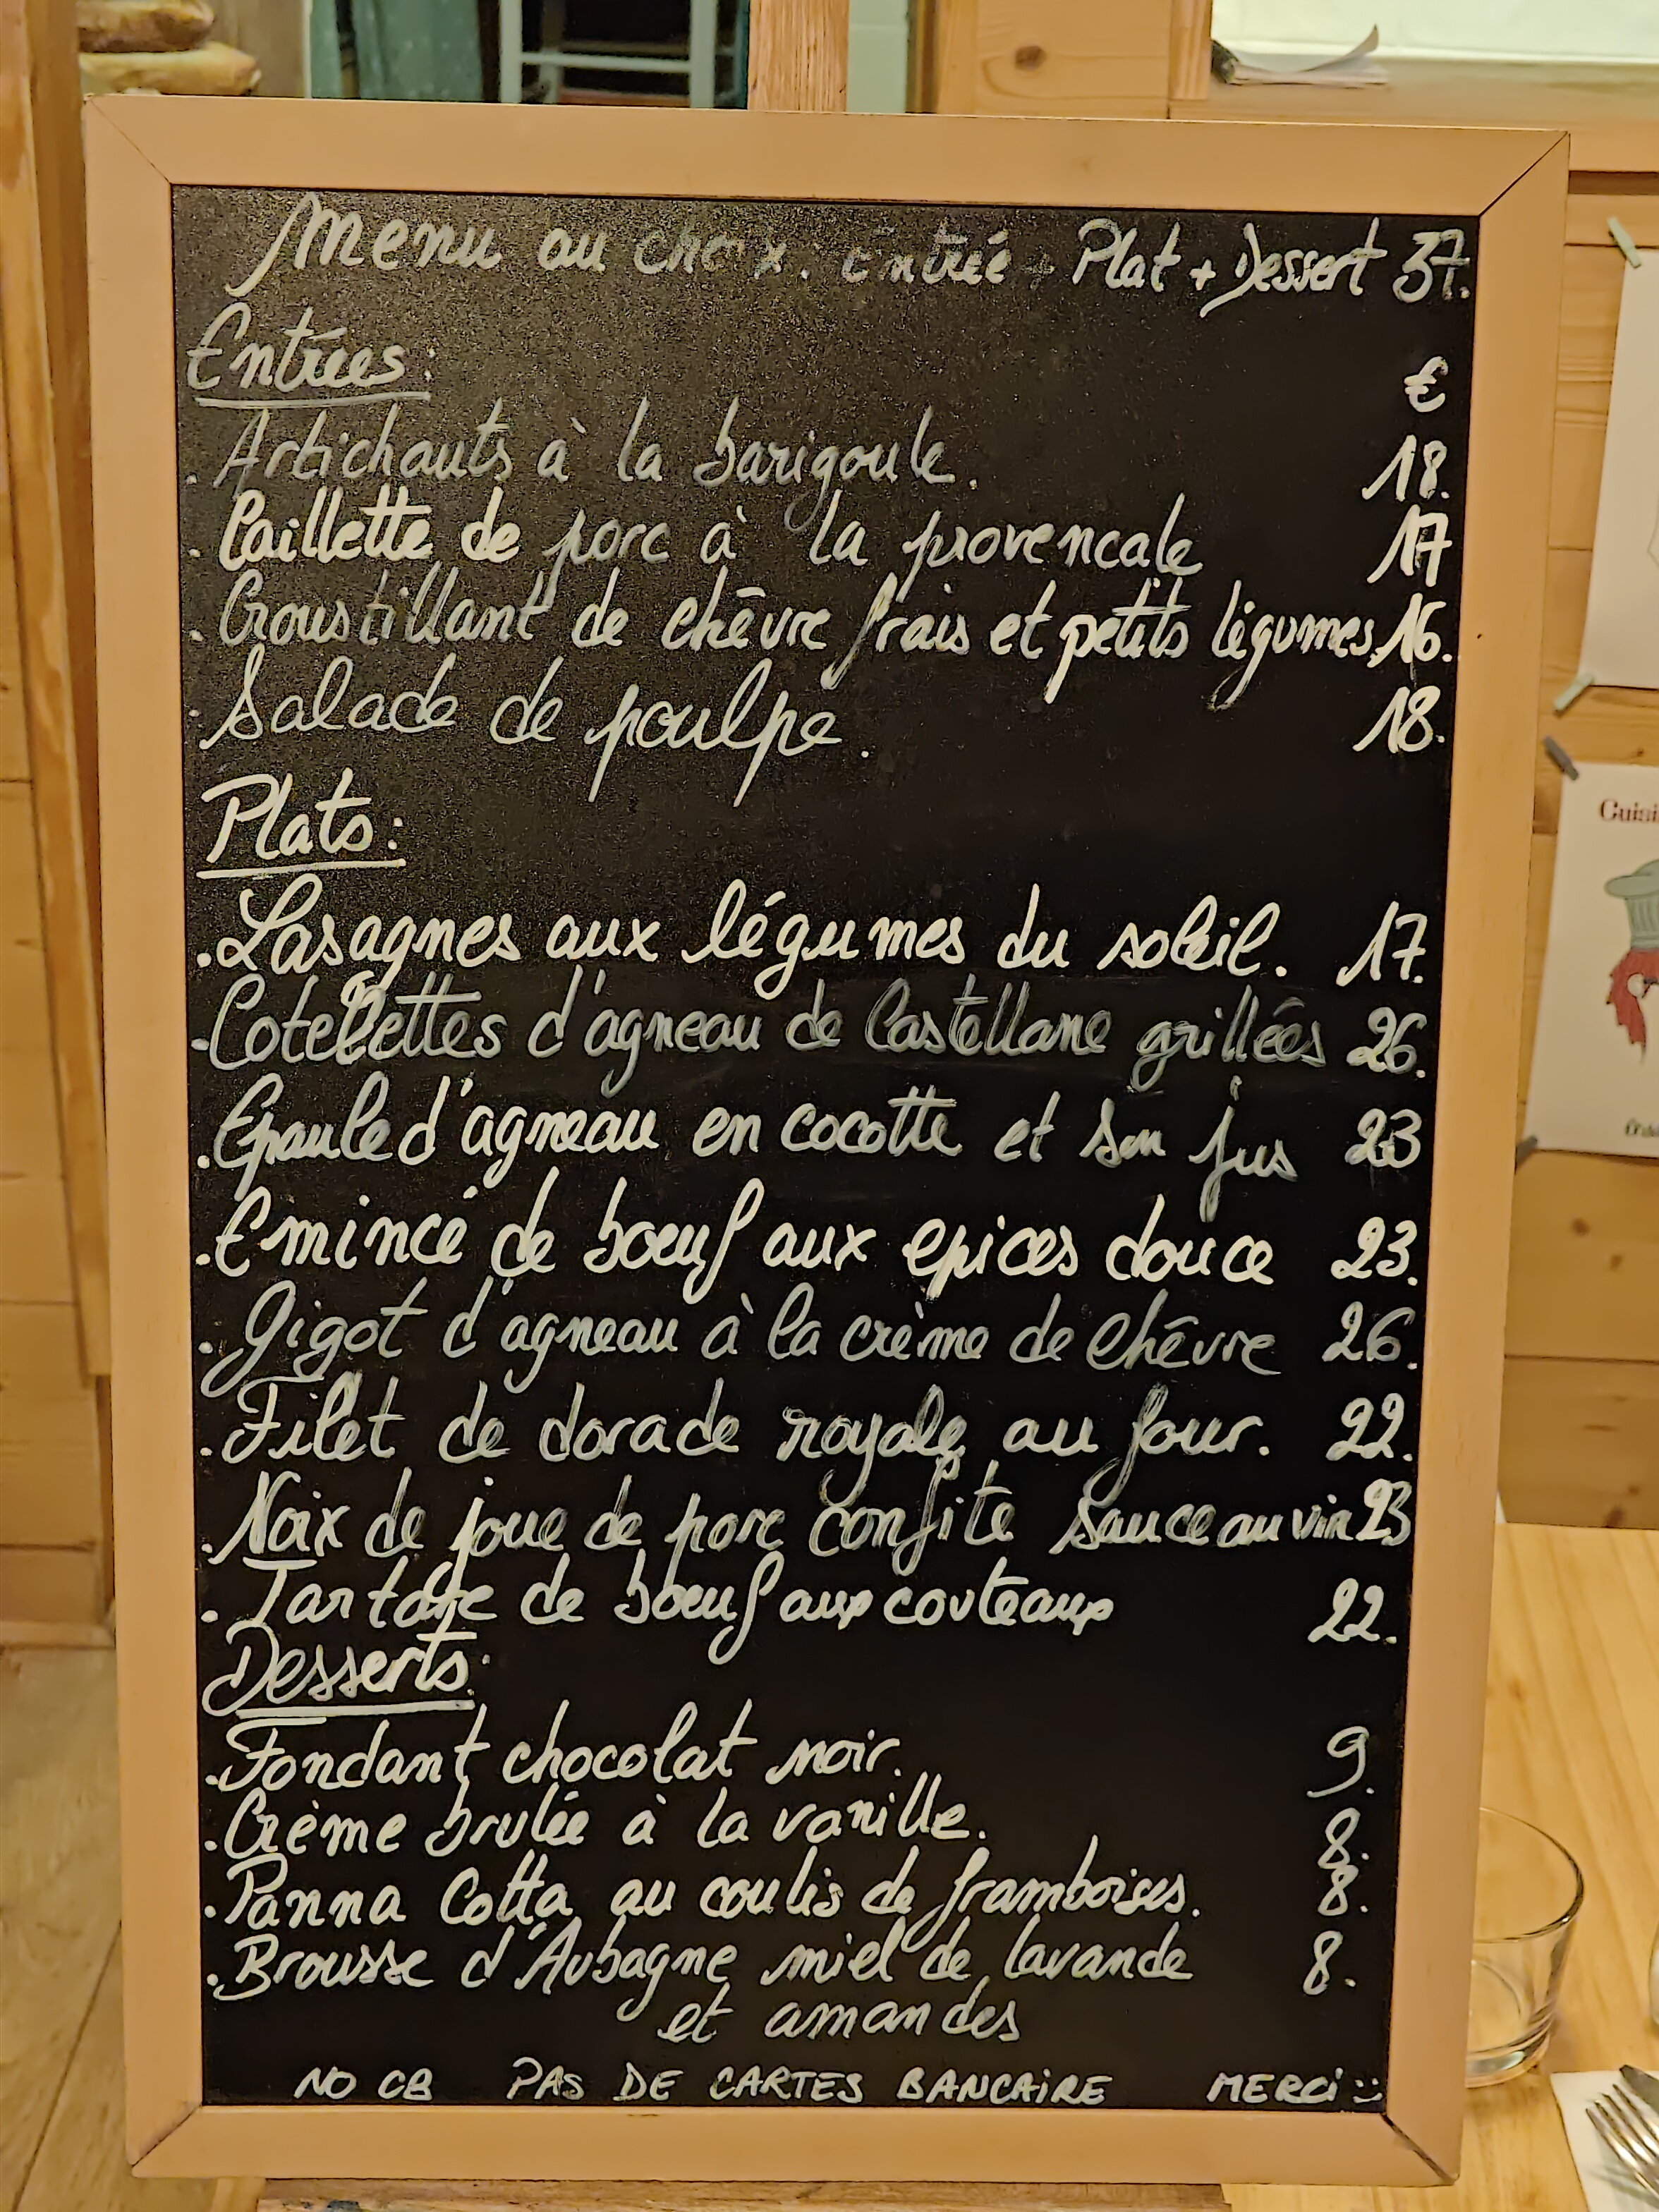 Menu au choix : Entrée + Plat + Dessert 37.
Entrées :
€
. Artichauts à la barigoule. 18.
. Caillette de porc à la provencale 17
. Croustillant de chèvre frais et petits légumes. 16.
. Salade de poulpe. 18.
Plats :
. Lasagnes aux légumes du soleil. 17.
. Cotelettes d'agneau de Castellane grillées 26.
. Epaule d'agneau en cocotte et son jus 23
. Emincé de boeuf aux epices douce 23.
. Gigot d'agneau à la crème de chèvre 26.
. Filet de dorade royale au four. 22.
. Noix de joue de porc confite sauce au vin 23
. Tartare de boeuf aux couteaux 22.
Desserts :
. Fondant chocolat noir. 9.
. Crème brulée à la vanille. 8.
. Panna Cotta au coulis de framboises. 8.
. Brousse d'Aubagne miel de lavande 8.
et amandes
NO CB PAS DE CARTES BANCAIRE MERCI :)
Cuisi